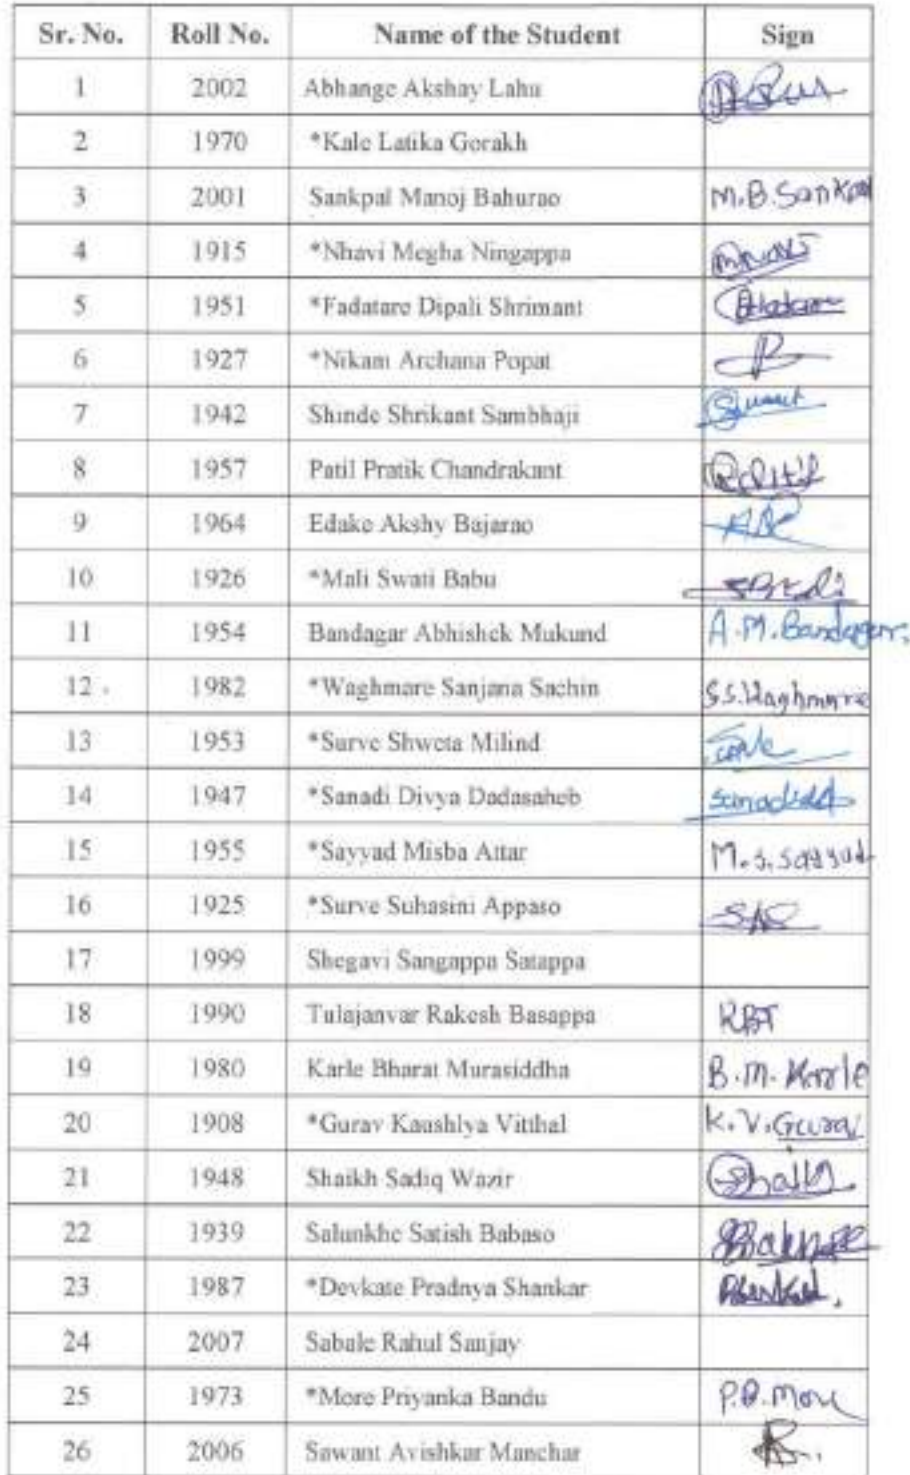 Sr. No. Roll No. Name of the Student Sign
1 2002 Abhange Akshay Lahu
2 1970 *Kale Latika Gorakh
3 2001 Sankpal Manoj Bahurao M.B.Sankpal
4 1915 *Nhavi Megha Ningappa
5 1951 *Fadatare Dipali Shrimant
6 1927 *Nikam Archana Popat
7 1942 Shinde Shrikant Sambhaji
8 1957 Patil Pratik Chandrakant
9 1964 Edake Akshy Bajarao
10 1926 *Mali Swati Babu
11 1954 Bandagar Abhishek Mukund A.M.Bandagar.
12 1982 *Waghmare Sanjana Sachin S.S.Waghmare
13 1953 *Surve Shweta Milind
14 1947 *Sanadi Divya Dadasaheb
15 1955 *Sayyad Misba Attar M.S.Sayyad
16 1925 *Surve Suhasini Appaso
17 1999 Shegavi Sangappa Satappa
18 1990 Tulajanvar Rakesh Basappa RBT
19 1980 Karle Bharat Murasiddha B.M.Karle
20 1908 *Gurav Kaushlya Vitthal K.V.Gurav
21 1948 Shaikh Sadiq Wazir
22 1939 Salunkhe Satish Babaso
23 1987 *Devkate Pradnya Shankar
24 2007 Sabale Rahul Sanjay
25 1973 *More Priyanka Bandu P.B.More
26 2006 Sawant Avishkar Manohar